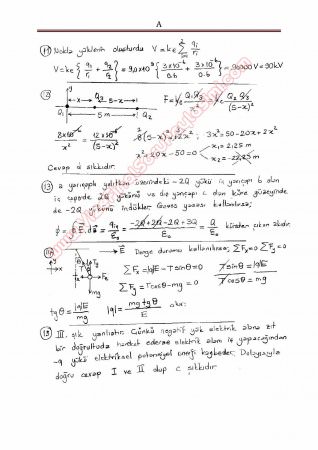 A
11) Noktasal yüklerin oluşturduğu V=ke Σ qi/ri
V=ke { q1/r1 + q2/r2 } = 9,0x10⁹ { 3x10⁻⁶/0.6 + 3x10⁻⁶/0.6 } = 90000 V = 90kV
12)
Q3
x 5-x
Q1 5m Q2
F = ke Q1 q3/x² = ke Q2 q3/(5-x)²
8x10⁻⁶/x² = 12x10⁻⁶/(5-x)² 2(5-x)² = 3x² ; 3x² = 50-20x+2x²
x²+20x-50=0 x1 = 2.25 m
x2 = -22.25 m
Cevap a şıkkıdır.
13) a yarıçaplı yalıtkan üzerindeki -2Q yükü iç yarıçapı b olan
iç çeperde 2Q yükünü ve dış yarıçapı c olan küre yüzeyinde
de -2Q yükünü indükler. Gauss yasası kullanılırsa;
ϕ = ∮ E.da = qiç/ε0 = -2Q+2Q-2Q+3Q/ε0 = Q/ε0 küreden çıkan akıdır.
14) E Denge durumu kullanılırsa; ΣFx=0 ΣFy=0
ΣFx = |q|E - Tsinθ = 0 Tsinθ = |q|E
ΣFy = Tcosθ - mg = 0 Tcosθ = mg
mg
tgθ = |q|E/mg |q| = mg tgθ/E olur.
15) III. şık yanlıştır. Çünkü negatif yük elektrik alana zıt
bir doğrultuda hareket ederse elektrik alan iş yapacağından
-q yükü elektriksel potansiyel enerji kaybeder. Dolayısıyla
doğru cevap I ve II olup c şıkkıdır.